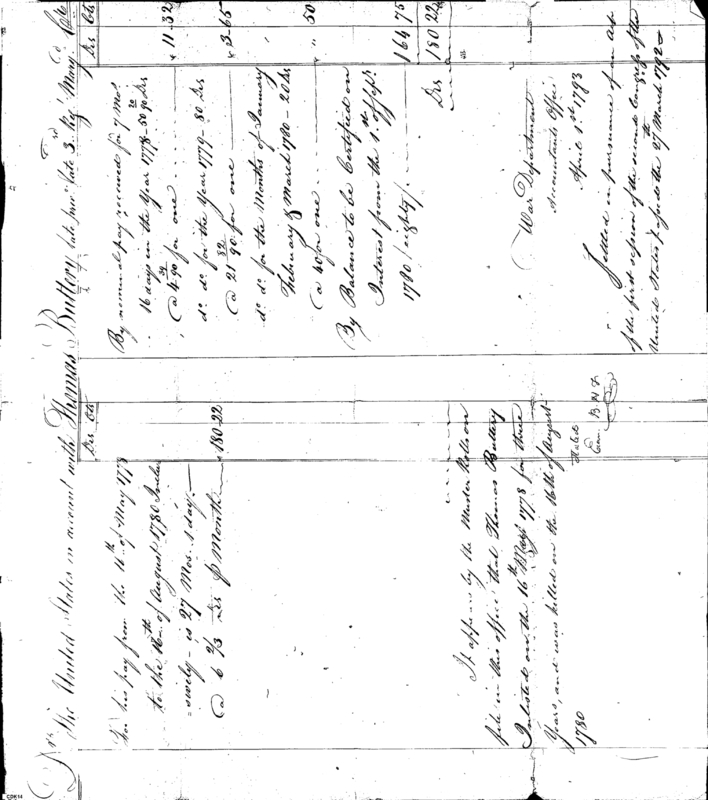 Drs The United States in account with Thomas Buttery late priv. late 3. Reg. Mary.
Drs Cts
For his pay from the 16th of May 1778
to the 16th of August 1780 Inclu
sively - is 27 Mos. 1 day.
@ 6 2/3 Drs p Month 180.22
It appears by the Muster Rolls on
file in this office that Thomas Buttery
Inlisted on the 16th May 1778 for three
Years, and was killed on the 16th of August
1780
Exam.
Drs Cts
By nominal pay received for 7 Mos
16 days in the Year 1778 - 50 20/90 Drs
@ 4 for one 11.32
do. do. for the Year 1779 - 80 Drs
@ 21 for one 3.65
do. do. for the Months of January
February & March 1780 - 20 Drs
@ 40 for one 50
By Balance to be Certified on
Interest from the 1st of
1780 (eighty) 164.75
Drs 180.22
War Department
Accountants Office
April 1st 1793
Settled in pursuance of an Act
of the first session of the second Congress of the
United States passed the 27th March 1792
CDK14